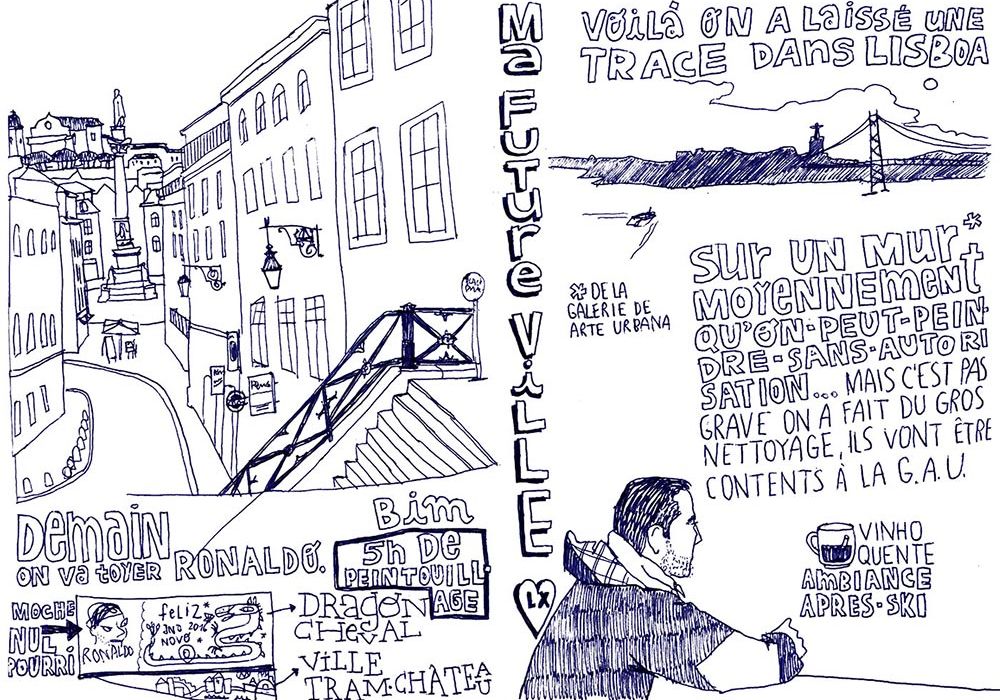 Ma FUTUre ViLLE
LX
DEMAIN
ON Va tOYER RONALDO.
BIM
5h DE
PEINTOUILL
AGE
MOCHE
NUL
POURRI
RONALDO
feLiZ*
ANO 2016
NOVO *
DRAGON
CHEVAL
ViLLE
TRAM·CHÂTEAU
VOILÀ ON A LaiSSÉ UNE
TRACE DANS LISBOA
SUR UN MUR*
MOYENNEMENT
QU'ON·PEUT·PEIN·
DRE-SANS-AUTORI
SATION... MAIS C'EST PAS
GRAVE ON A FAIT DU GROS
NETTOYAGE, ILS VONT ÊTRE
CONTENTS À LA G.A.U.
* DE LA
GALERIE DE
ARTE URBANA
VINHO
QUENTE
AMBIANCE
APRES-SKI